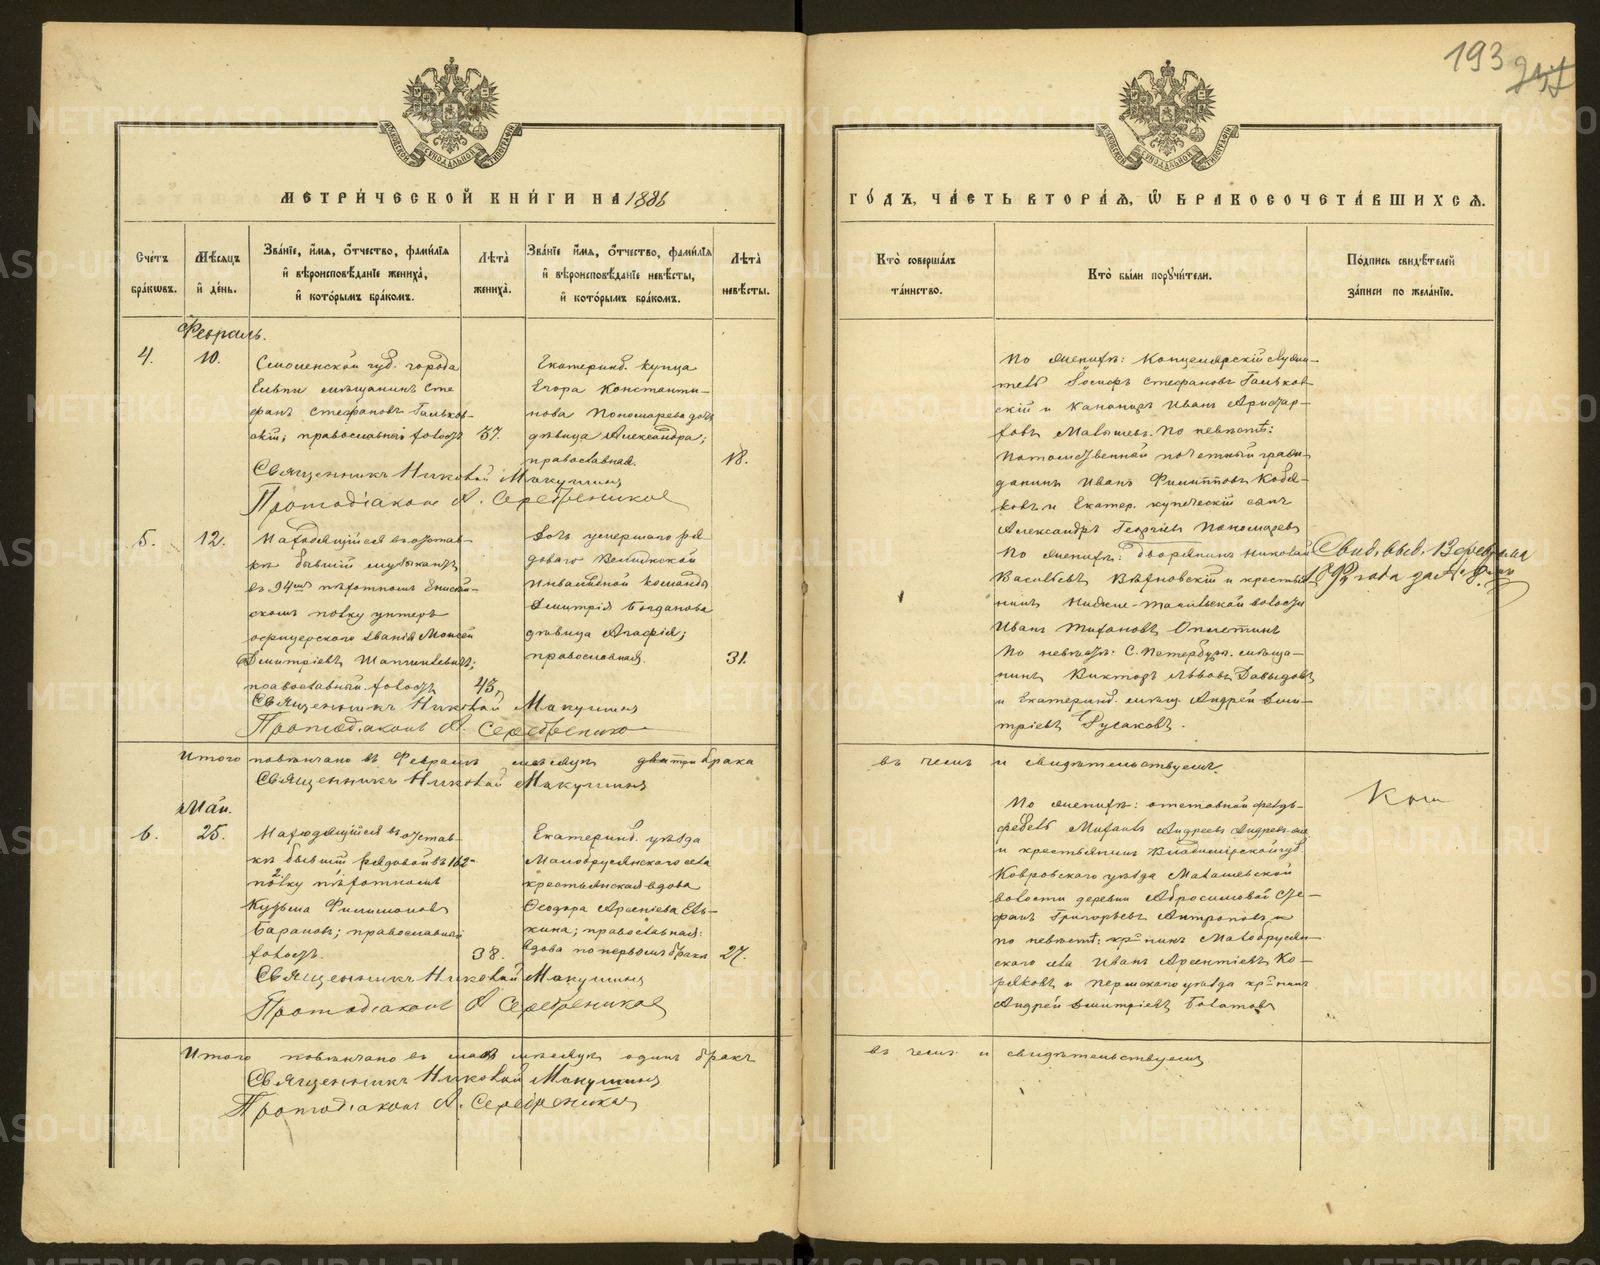 193
МЕТРИ́ЧЕСКОЙ КНИ́ГИ НА 1886
ГО́ДЪ, ЧА́СТЬ ВТОРА́Я, Ѡ БРАКОСОЧЕТА́ВШИХСЯ.
МОСКОВСКОЙ СѴНОДАЛЬНОЙ ТИПОГРАФІИ
МОСКОВСКОЙ СѴНОДАЛЬНОЙ ТИПОГРАФІИ
Сче́тъ бра́кωвъ.
Мѣ́сяцъ и҆ де́нь.
Зва́нїе, и҆́мя, ѻ҆́тчество, фами́лїя
и҆ вѣроисповѣ́данїе жениха̀,
и҆ кото́рымъ бра́комъ.
Лѣта̀ жениха̀.
Зва́нїе и҆́мя, ѻ҆́тчество, фами́лїя
и҆ вѣроисповѣ́данїе невѣ́сты,
и҆ кото́рымъ бра́комъ.
Лѣта̀ невѣ́сты.
Кто̀ соверша́лъ та́инство.
Кто̀ бы́ли порꙋчи́тели.
По́дпись свидѣ́телей за́писи по жела́нїю.
Февраль.
4.
10.
Смоленской губ. города
Ельни мѣщанинъ Сте
фанъ Стефановъ Гальков-
скій; православный холостъ
37.
Екатеринб. купца
Егора Константи-
нова Пономарева дочь
дѣвица Александра;
православная.
18.
Священникъ Николай Макушинъ
Протодіаконъ А. Серебренниковъ
По женихѣ: Канцелярскій служи-
тель Іосифъ Стефановъ Гальков-
скій и Иванъ Аристар-
ховъ Малышевъ. По невѣстѣ:
Потомственный почетный граж-
данинъ Иванъ Филипповъ Кобя-
ковъ и Екатер. купеческій сынъ
Александръ Георгіевъ Пономаревъ
5.
12.
Находящійся въ отстав-
кѣ бывшій музыкантъ
въ 94мъ пѣхотномъ Енисей-
скомъ полку унтеръ
офицерскаго званія Моисей
Дмитріевъ
православный холостъ
43.
Дочь умершаго ря-
доваго
Инвалидной команды
Дмитрія Богданова
дѣвица Агафія;
православная.
31.
Священникъ Николай Макушинъ
Протодіаконъ А. Серебренниковъ
По женихѣ: дворянинъ Николай
Васильевъ и крестья-
нинъ Нижне-Тагильской волости
Иванъ
По невѣстѣ: С. Петербур. мѣща-
нинъ Викторъ Львовъ Давыдовъ
и Екатеринб. мѣщ. Андрей Дми-
тріевъ Русаковъ.
Свид. выд. 13 февраля
1892 года за №
Итого повѣнчано въ Февралѣ мѣсяцѣ три брака
въ чемъ и свидѣтельствуемъ.
Священникъ Николай Макушинъ
Май.
6.
25.
Находящійся въ отстав-
кѣ бывшій рядовой въ 162-
полку пѣхотномъ
Кузьма Филимоновъ
Барановъ; православный
холостъ.
38.
Екатеринб. уѣзда
Малобрусянскаго села
крестьянская вдова
Ѳеодора Арсеніева Ель-
кина; православная:
вдова по первомъ бракѣ
27.
Священникъ Николай Макушинъ
Протодіаконъ А. Серебренниковъ
По женихѣ: отставной фельд-
фебель Андреевъ
и крестьянинъ Владимірской губ.
Ковровскаго уѣзда
волости деревни Абросимовой Сте-
фанъ Григорьевъ Антроповъ и
по невѣстѣ: кр-нинъ Малобрусян-
скаго села Иванъ Арсентіевъ Ко-
ряковъ и Пермскаго уѣзда кр-нинъ
Андрей Дмитріевъ Болотовъ
Итого повѣнчано въ маѣ мѣсяцѣ одинъ бракъ
въ чемъ и свидѣтельствуемъ
Священникъ Николай Макушинъ
Протодіаконъ А. Серебренниковъ
METRIKI.GASO-URAL.RU